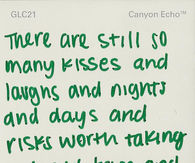 GLC21 Canyon Echo™
There are still so
many kisses and
laughs and nights
and days and
risks worth taking